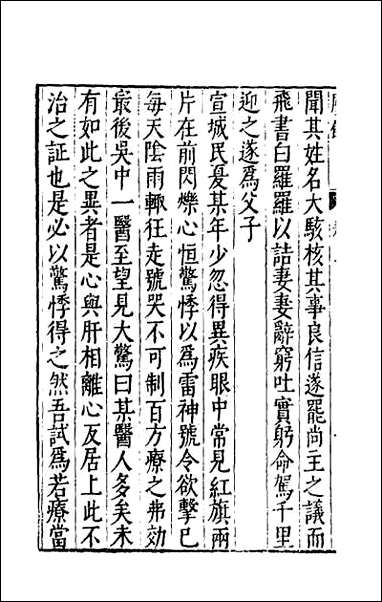 聞其姓名大駭核其事良信遂罷尚主之議而
飛書白羅羅以詰妻妻辭窮吐實躬命駕千里
迎之遂爲父子
宣城民憂某年少忽得異疾眼中常見紅旗兩
片在前閃爍心恒驚悸以爲雷神號令欲擊已
每天陰雨輙狂走號哭不可制百方療之弗効
最後吳中一醫至望見大驚曰某醫人多矣未
有如此之異者是心與肝相離心反居上此不
治之証也是必以驚悸得之然吾試爲若療當